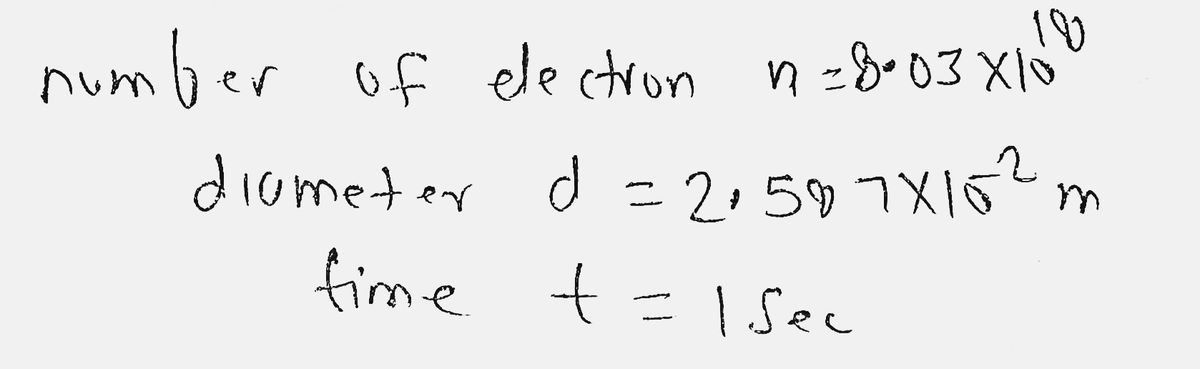 number of electron n = 8.03 X 10¹⁸
diameter d = 2.587 X 10⁻² m
time t = 1 Sec